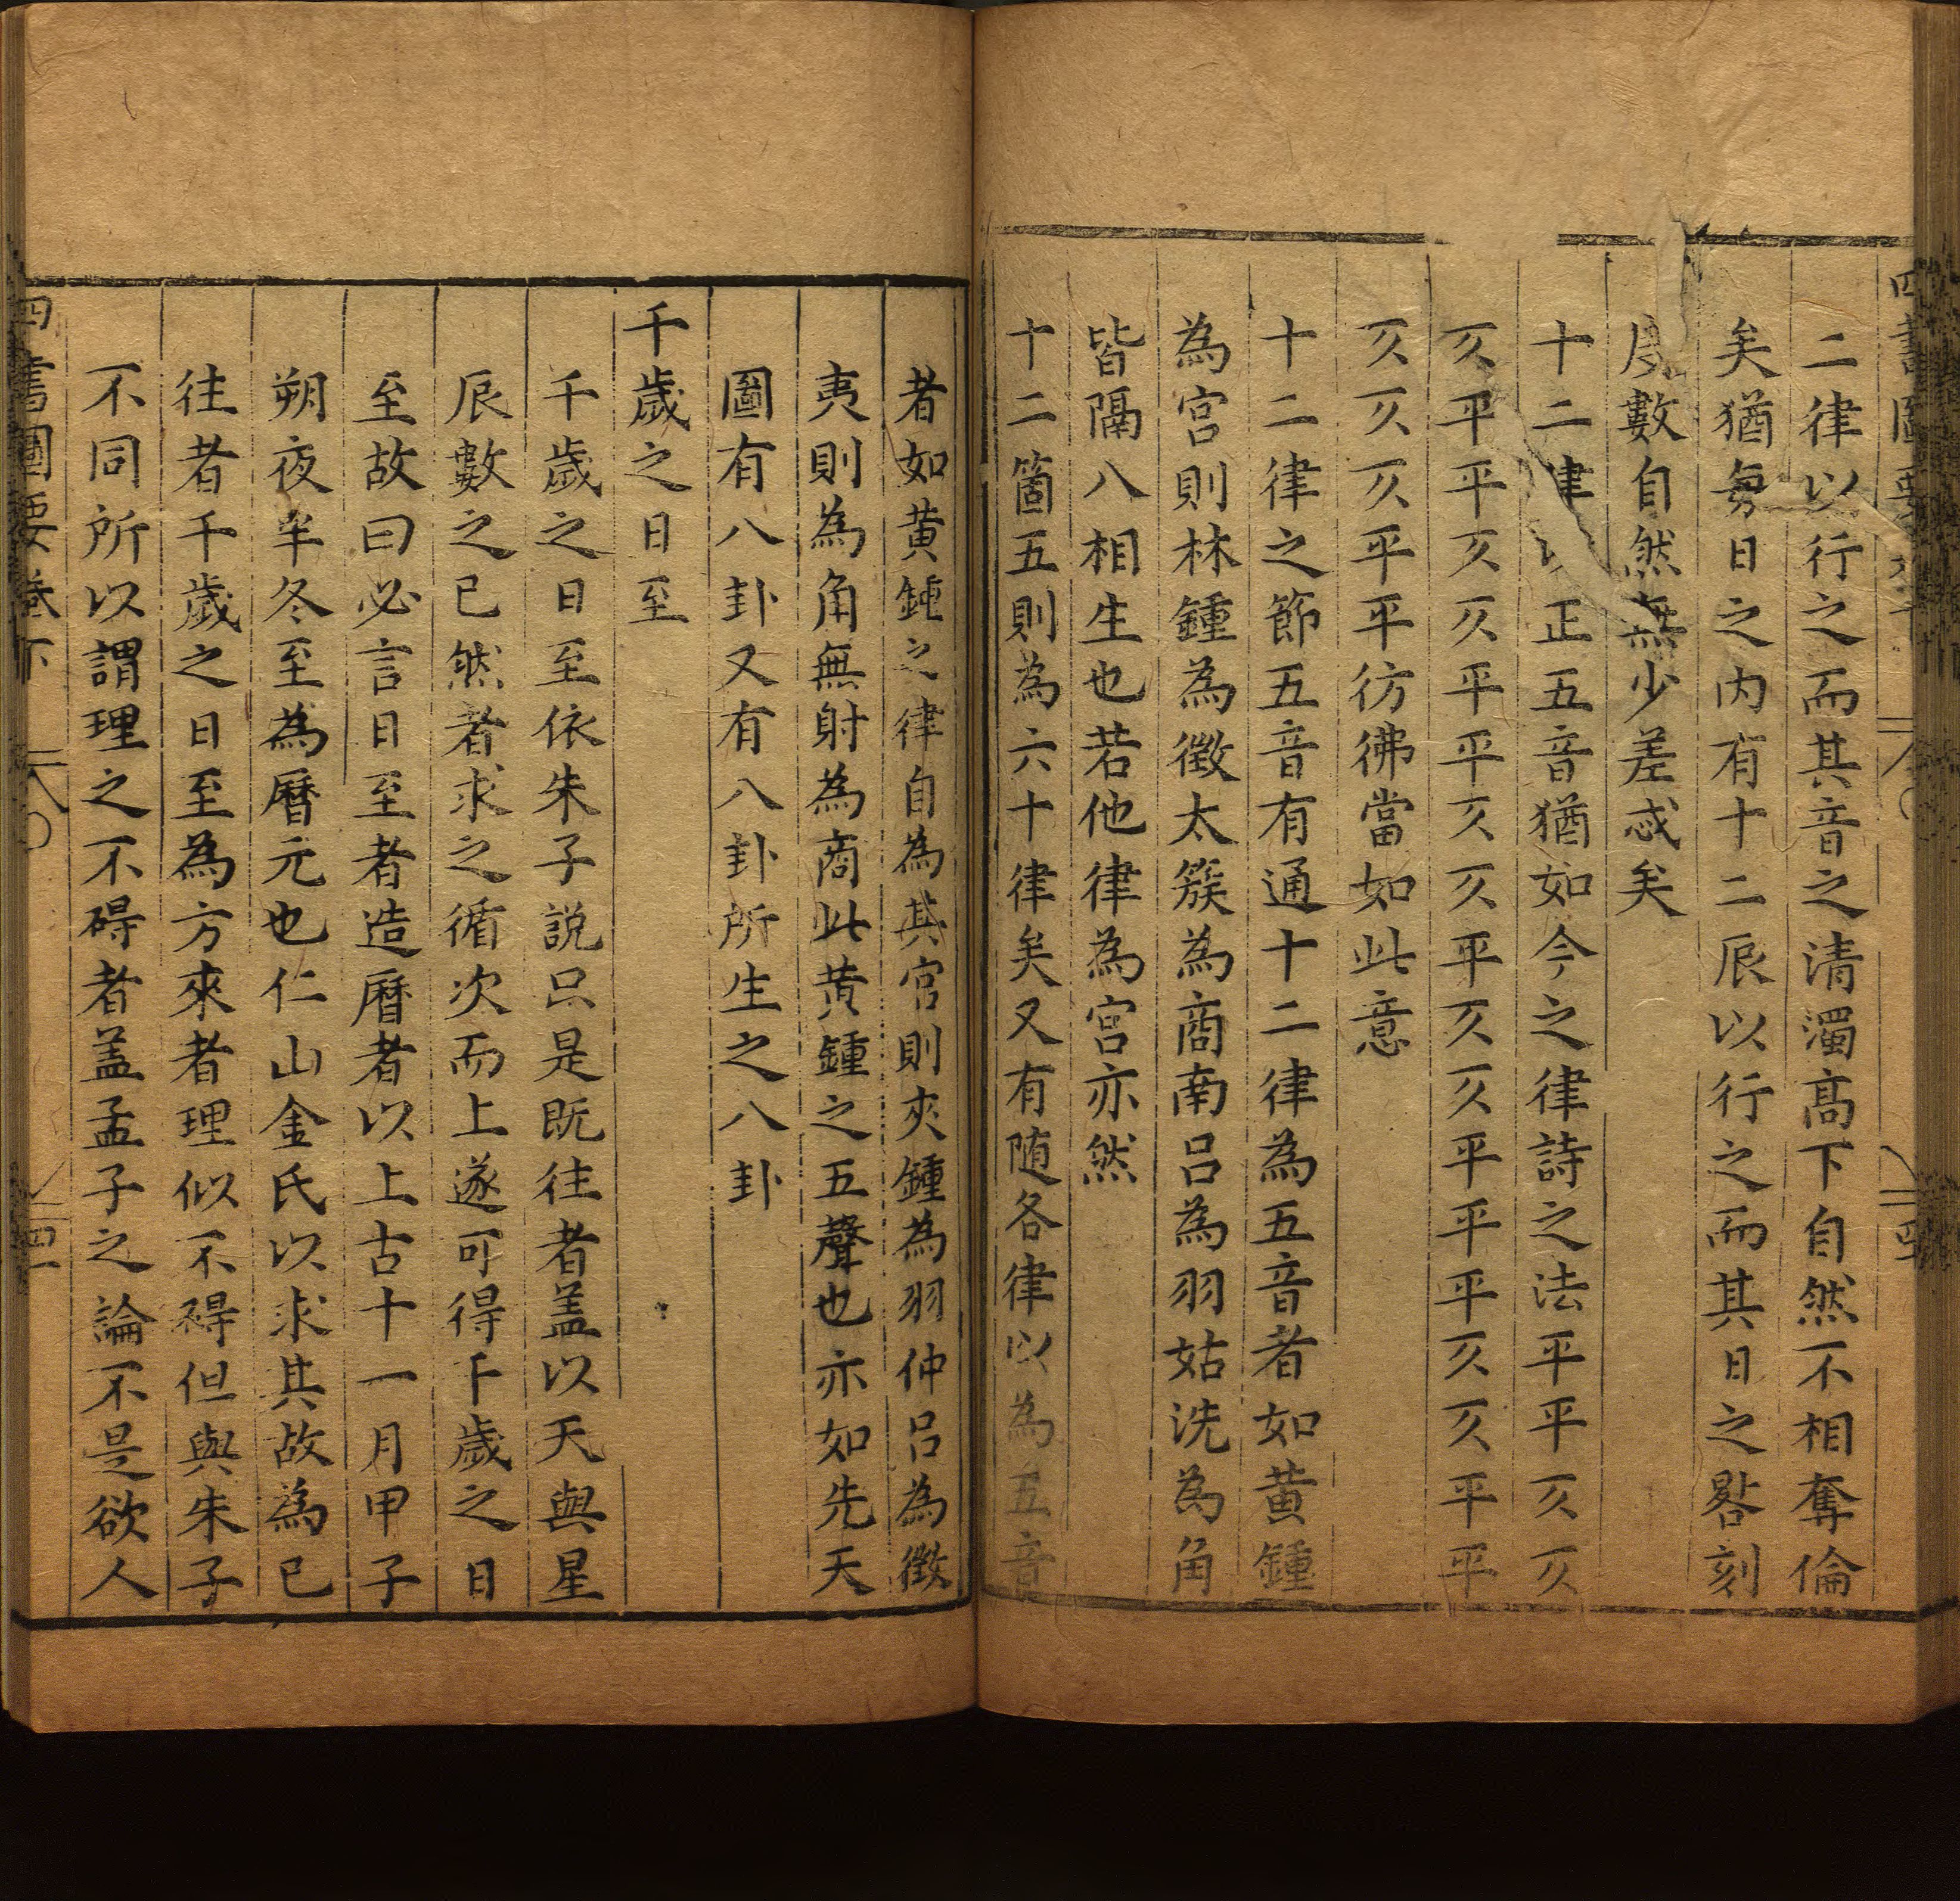 二律以行之而其音之清濁髙下自然不相奪倫
矣猶毎日之内有十二辰以行之而其日之晷刻
度數自然無少差忒矣
十二律 正五音猶如今之律詩之法平平仄仄
仄平平仄仄平平仄仄平仄仄平平平仄仄平平
仄仄仄平平彷彿當如此意
十二律之節五音有通十二律為五音者如黄鍾
為宫則林鍾為徵太簇為商南呂為羽姑洗為角
皆隔八相生也若他律為宫亦然
十二箇五則為六十律矣又有随各律以為五音
者如黄鍾之律自為其宫則夾鍾為羽仲呂為徵
夷則為角無射為商此黄鍾之五聲也亦如先天
圖有八卦又有八卦所生之八卦
千歲之日至
千歲之日至依朱子説只是既往者盖以天與星
辰數之已然者求之循次而上遂可得千歲之日
至故曰必言日至者造曆者以上古十一月甲子
朔夜半冬至為曆元也仁山金氏以求其故為已
往者千歲之日至為方來者理似不礙但與朱子
不同所以謂理之不碍者盖孟子之論不是欲人
四書圖要卷下